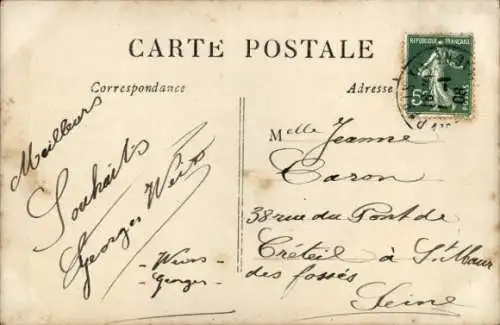 CARTE POSTALE
Correspondance
Adresse
REPUBLIQUE FRANÇAISE
5
08
Meilleurs
Souhaits
Georges Weiss
- Weiss -
- Georges -
Melle Jeanne
Caron
38 rue du Pont de
Créteil à St Maur
des fossés
Seine